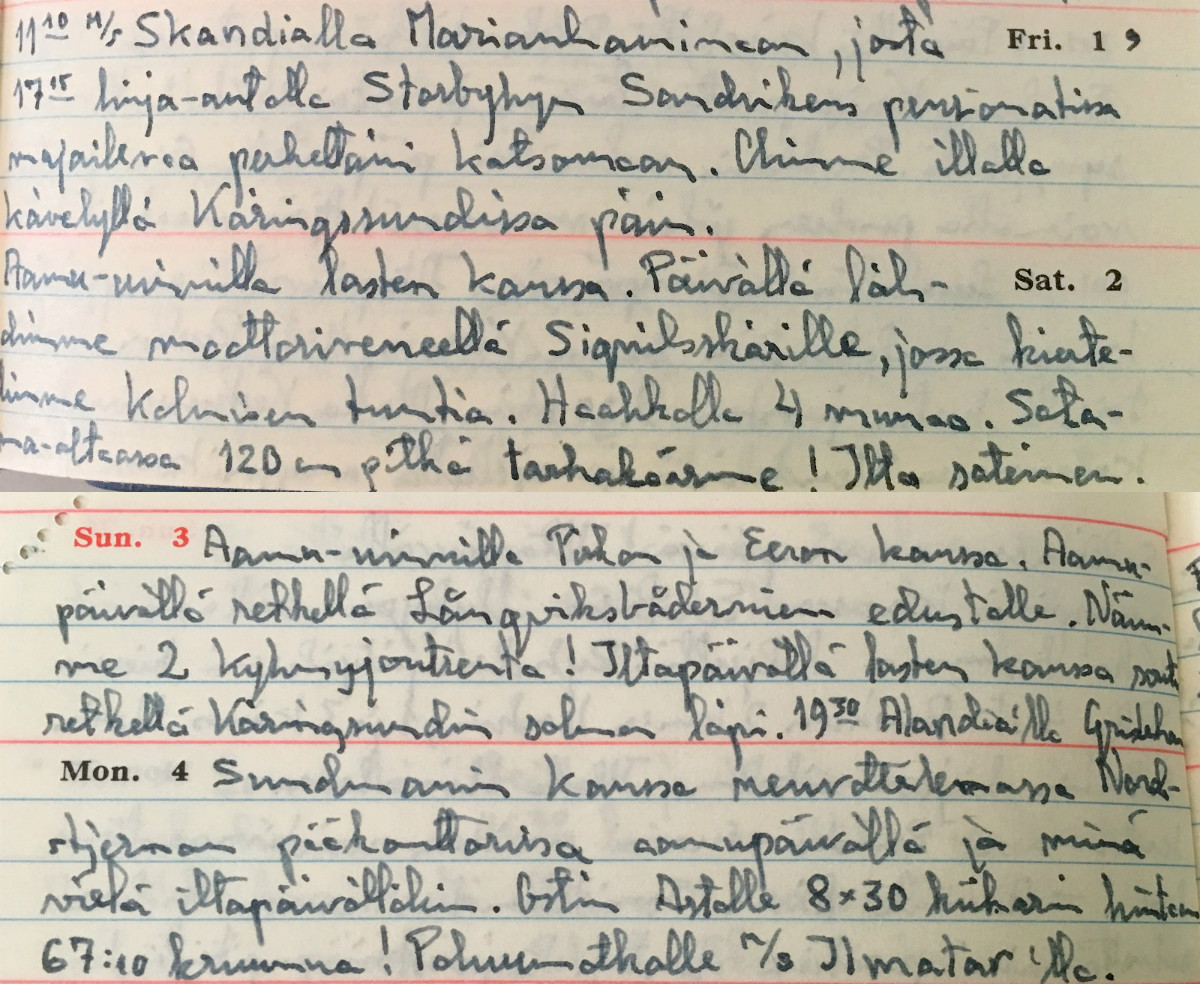 11¹⁰ M/S Skandialla Marianhaminaan, josta Fri. 1
17¹⁵ linja-autolla Storbyhyn Sandvikens pensionatissa
majailevaa perhettäni katsomaan. Olimme illalla
kävelyllä Käringssundissa päin.
Aamu-uinnilla lasten kanssa. Päivällä läh- Sat. 2
dimme moottoriveneellä Signilsskärille, jossa kierte-
limme kolmisen tuntia. Haahkalla 4 munaa. Sata-
ma-altaassa 120 cm pitkä tarhakäärme! Ilta sateinen.
Sun. 3 Aamu-uinnilla Pirkon ja Eeron kanssa. Aamu-
päivällä retkellä Långviksbådarnien edustalle. Näim-
me 2 kyhmyjoutsenta! Iltapäivällä lasten kanssa
retkellä Käringsundin salmen läpi. 19³⁰ Alandia'lla
Mon. 4 Sundmanin kanssa neuvottelemassa Nord-
stjernan pääkonttorissa aamupäivällä ja minä
vielä iltapäivälläkin. Ostin Astalle 8×30 kiikarin hintaan
67:10 kruunua! Paluumatkalle M/S Ilmatar'lla.